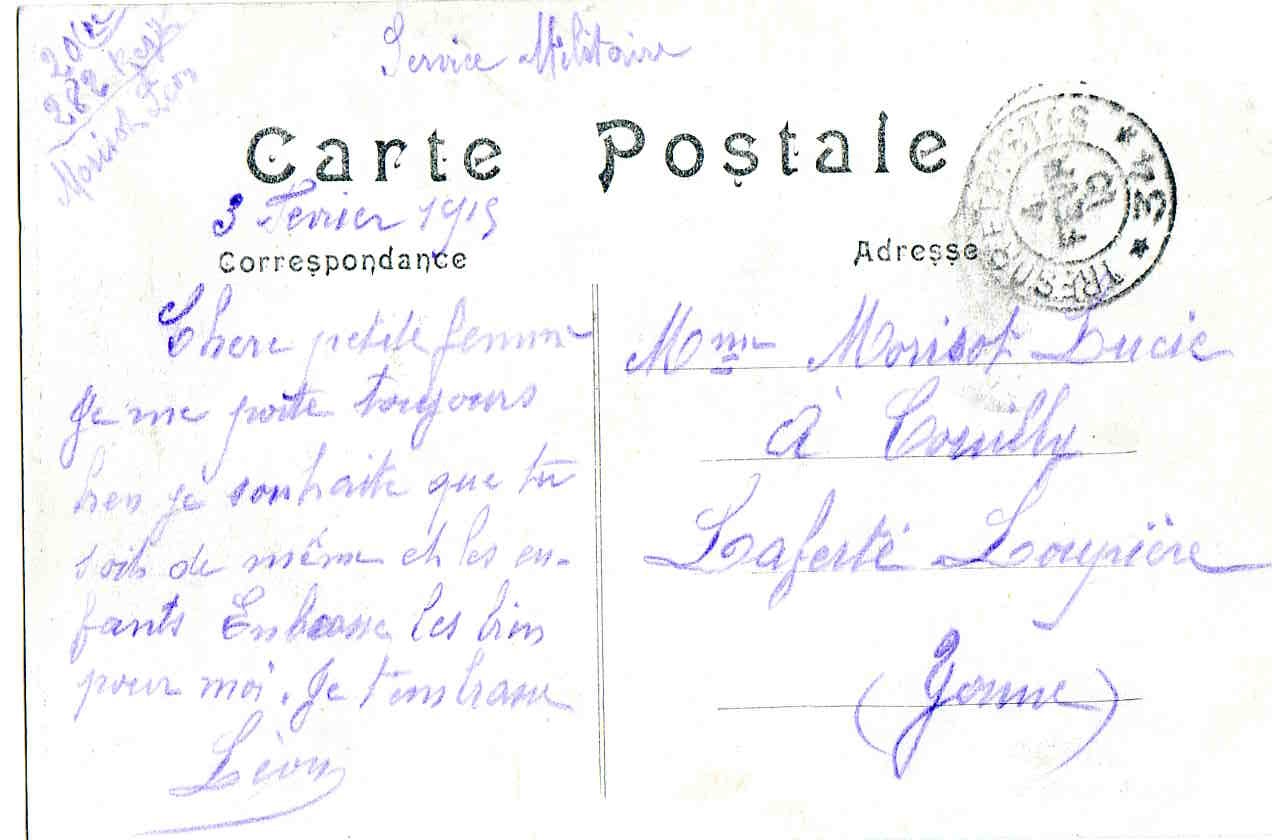 Service Militaire
20e
282 Regt
Morisot Léon
Carte Postale
3 Fevrier 1915
Correspondance
Chere petite femme
Je me porte toujours
bien je souhaite que tu
sois de même et les en-
fants Enbrasse les bien
pour moi. Je t'embrasse
Léon
Adresse
TRESOR ET POSTES
* 34 *
4
FEVR
15
Mme Morisot Lucie
à
Laferté Loupière
(Yonne)